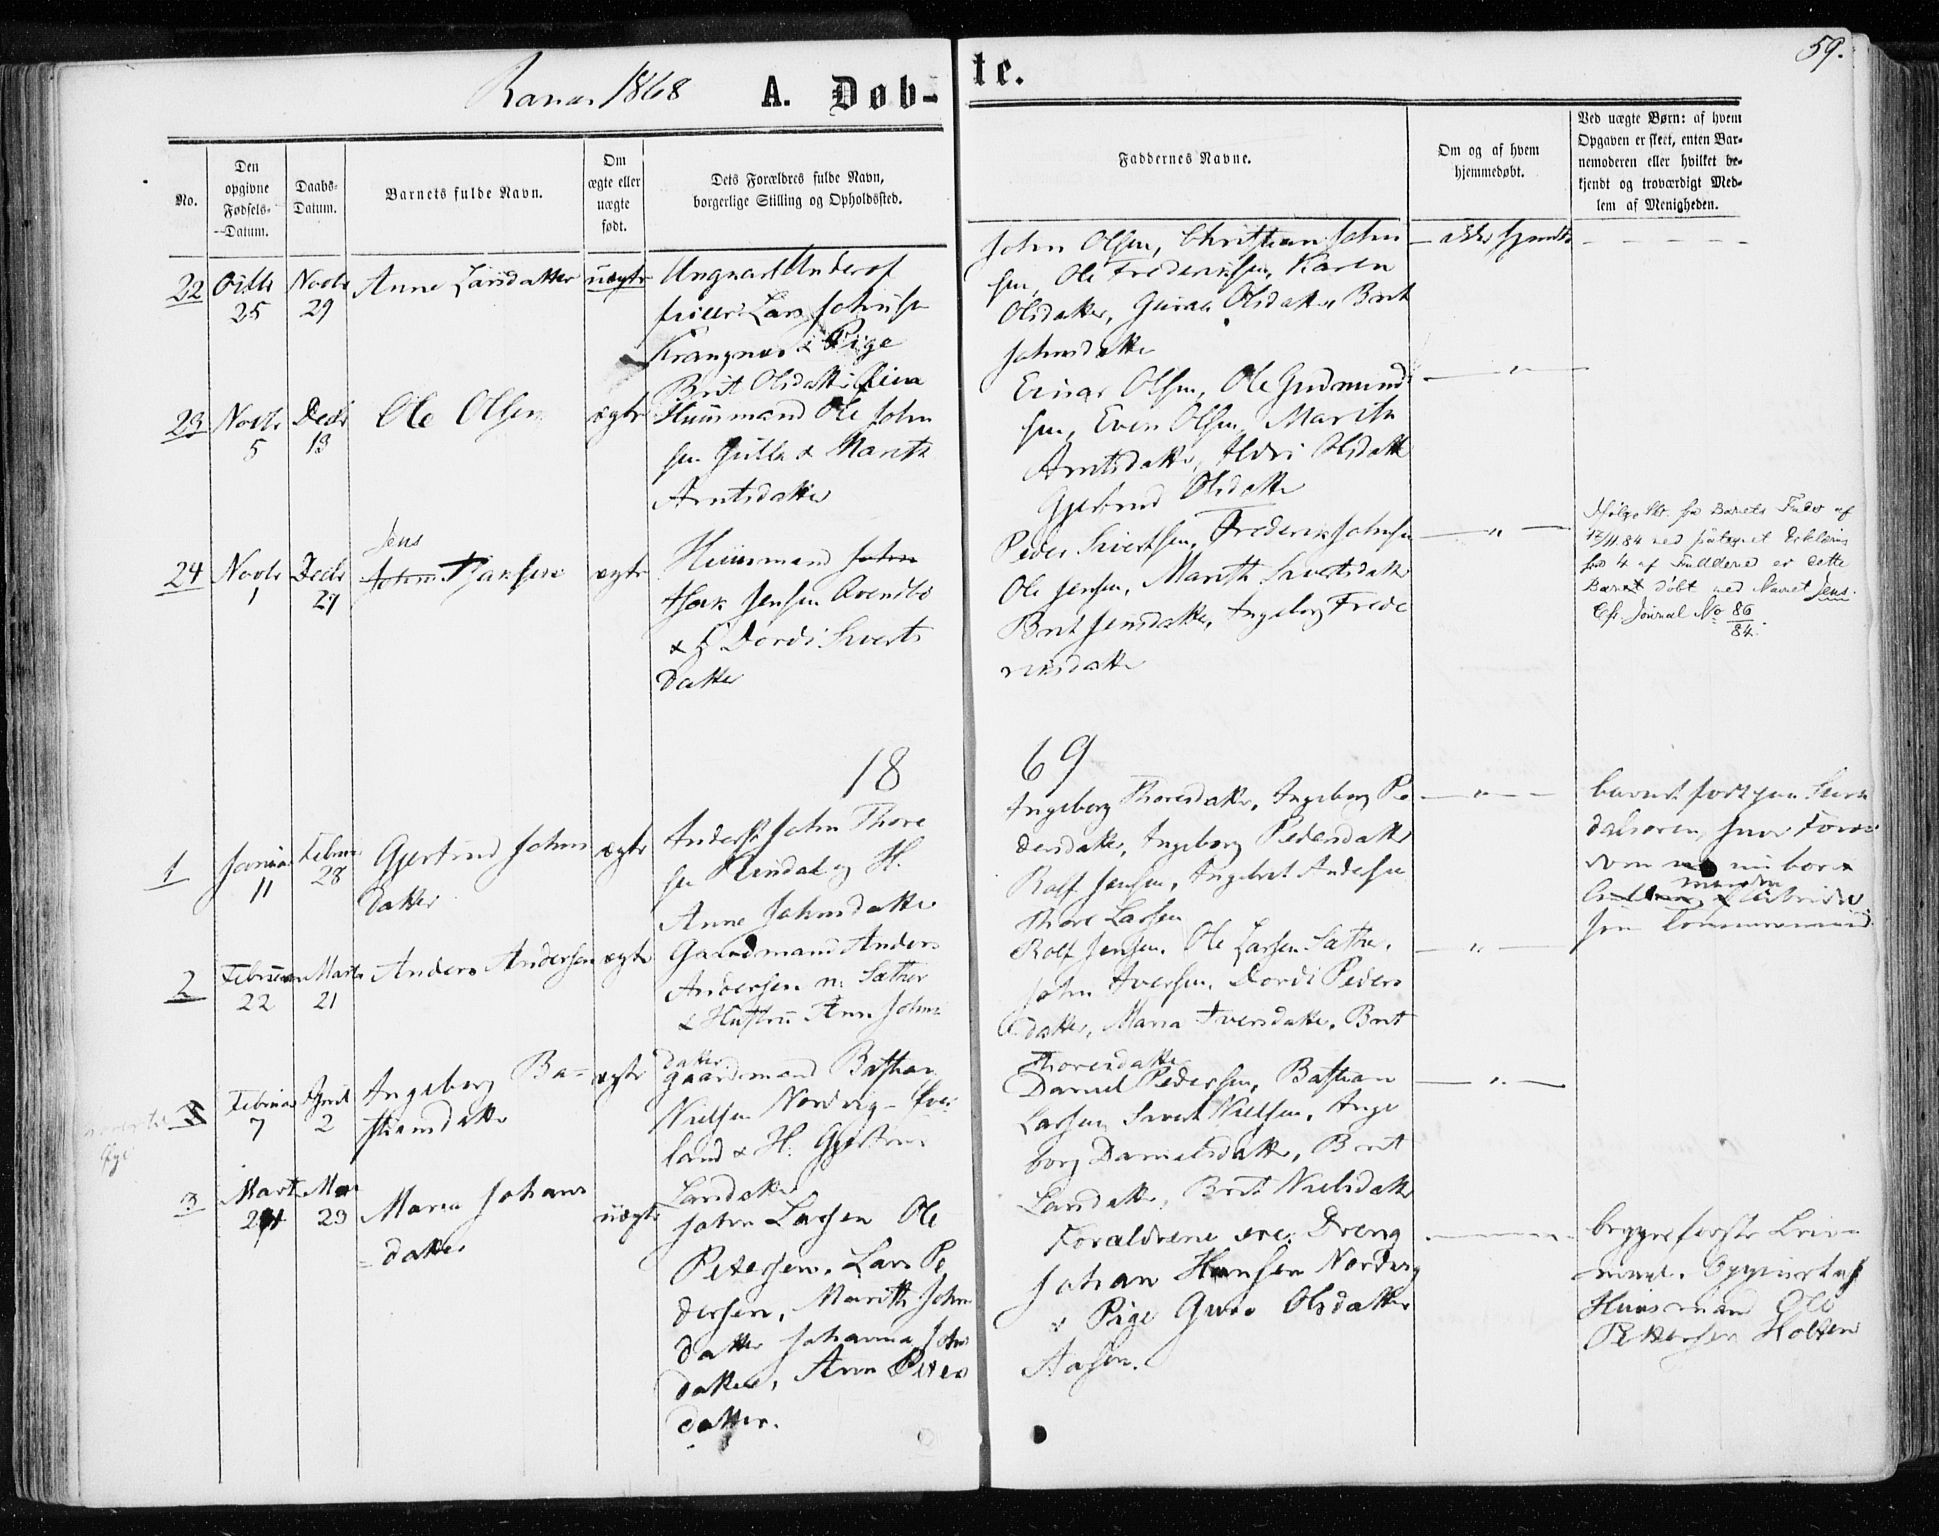 Ranæs 1868 A. Døb-te.
59.
No.
Den opgivne Fødsels-Datum.
Daabs-Datum.
Barnets fulde Navn.
Om ægte eller uægte født.
Dets Forældres fulde Navn, borgerlige Stilling og Opholdssted.
Faddernes Navne.
Om og af hvem hjemmedøbt.
Ved uægte Børn: af hvem Opgaven er skeet, enten Barnemoderen eller hvilket bekjendt og troværdigt Medlem af Menigheden.
22
Octbr 25
Novbr 29
Anne Larsdatter
uægte
Ungkarl Underof
Lars Johnsen
Krangnæs & Pige
Brit Olsdatter
John Olsen, Christian John
sen, Ole Frederiksen, Karen
Olsdatter, Guroe Olsdatter Brit
Johnsdatter
ikke hjemdbt
23
Novbr 5
Decbr 13
Ole Olsen
ægte
Huusmand Ole John
sen Gulla & Marith
Arntsdatter
Einar Olsen, Ole Gudmund
sen, Even Olsen, Marith
Arntsdatter, Ildri Olsdatter
Gjertrud Olsdatter
"
24
Novbr 1
Decbr 27
Jens
John Hansen
ægte
Huusmand John
Jensen Qvendbø
& H Dordi Siverts
datter
Peder Sivertsen, Frederik Johnsen
Ole Jensen, Marith Sivertsdatter
Brit Jensdatter, Ingeborg Frede
riksdatter
"
Ifølge Skr. fra Barnets Fader af
12/11 84 med paategnet Erklæring
fra 4 af Fadderne er dette
Barn døbt med Navnet Jens.
Cfr. Journal No 86/84.
1869
1
Januar 11
Februar 28
Gjertrud Johns
datter
ægte
John Thore
sen Rindal og H.
Anne Johnsdatter
Ingeborg Thoresdatter, Ingeborg Pe
dersdatter, Ingeborg Pedersdatter
Rolf Jensen, Ingebret Andersen
Thore Larsen
"
barnet født paa Surn
dalsøren, hvor Foræl
2
Februar 22
Marts 21
Anders Andersen
ægte
Gaardmand Anders
Andersen n. Sæther
& Hustru Ann Johns
datter
Rolf Jensen, Ole Larsen Sæther,
John Iversen, Dordi Peders
datter, Maria Iversdatter, Brit
Thoresdatter
"
3
Februar 7
April 2
Ingeborg Ba-
stiansdatter
ægte
Gaardmand Bastian
Nielsen Nordvig-Øve
land & H. Gjertrud
Larsdatter
Daniel Pedersen, Bastian
Larsen, Sivert Nielsen, Inge
borg Danielsdatter, Brit
Larsdatter, Brit Nielsdatter
"
3
Marts 24
Mai 23
Maren Johans
datter
uægte
John Larsen Ole
Petersen, Lars Pe
dersen, Marith John
datter Johanna John
datter, Ann Peters
datter.
Forældrene ere: Dreng
Johan Hansen Nordvig
& Pige Guro Olsdatter
Aasen.
begges første Leier
maal. Opgivet af
Huusmand Ole
Pettersen Holten